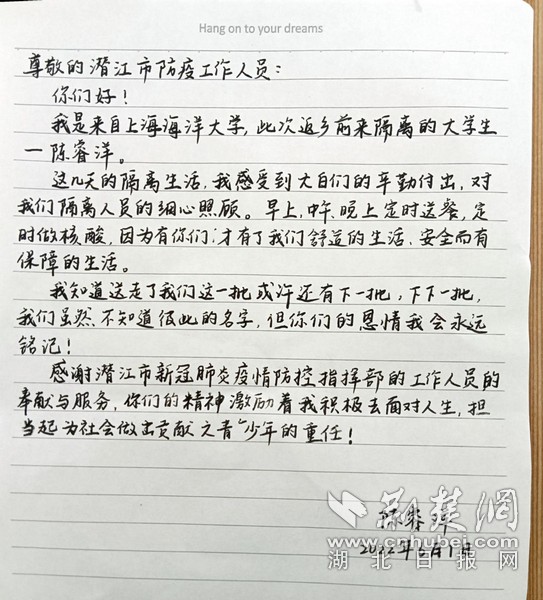 Hang on to your dreams
尊敬的潜江市防疫工作人员：
你们好！
我是来自上海海洋大学，此次返乡前来隔离的大学生
一陈睿洋。
这几天的隔离生活，我感受到大白们的辛勤付出，对
我们隔离人员的细心照顾。早上，中午，晚上定时送餐，定
时做核酸，因为有你们，才有了我们舒适的生活、安全而有
保障的生活。
我知道送走了我们这一批或许还有下一批，下下一批，
我们虽然不知道彼此的名字，但你们的恩情我会永远
铭记！
感谢潜江市新冠肺炎疫情防控指挥部的工作人员的
奉献与服务，你们的精神激励着我积极去面对人生，担
当起为社会做出贡献之青少年的重任！
陈睿洋
2022年6月1日
荆楚网
www.cnhubei.com
湖北日报网